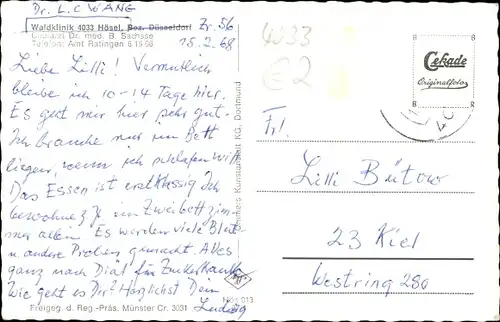 Dr. L.C WANG
Waldklinik 4033 Hösel, Bez. Düsseldorf Zr. 56
Chefarzt Dr. med. B. Sachsse 15.2.68
Telefon: Amt Ratingen 6 19 68
Liebe Lilli! Vermutlich
bleibe ich 10-14 Tage hier.
Es geht mir hier sehr gut.
Ich brauche nur im Bett
liegen, wenn ich schlafen will.
Das Essen ist erstklassig. Ich
bewohne z. Z. ein Zweibettzim-
mer allein. Es werden viele Blut-
u. andere Proben gemacht. Alles
ganz nach Diät für Zuckerkranke
Wie geht es Dir? Herzlichst Dein
Ludwig
Freigeg. d. Reg.-Präs. Münster Cr. 3031
Hös 013
Kunstanstalt KG, Dortmund
4033
€2
Cekade
Originalfoto
Frl.
Lilli Bütow
23 Kiel
Westring 280